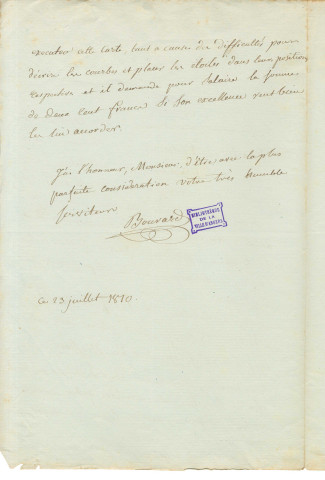 executer cette carte, tant a cause des difficultés pour
décrire les courbes et placer les étoiles dans leurs positions
respectives et il demande pour salaire la somme
de deux cent francs si son excellence veut bien
les lui accorder.
J'ai l'honneur, Monsieur, d'être avec la plus
parfaite considération votre très humble
serviteur
Bouvard
BIBLIOTHEQUE
DE LA
VILLE D'ANGERS
Ce 23 juillet 1810.